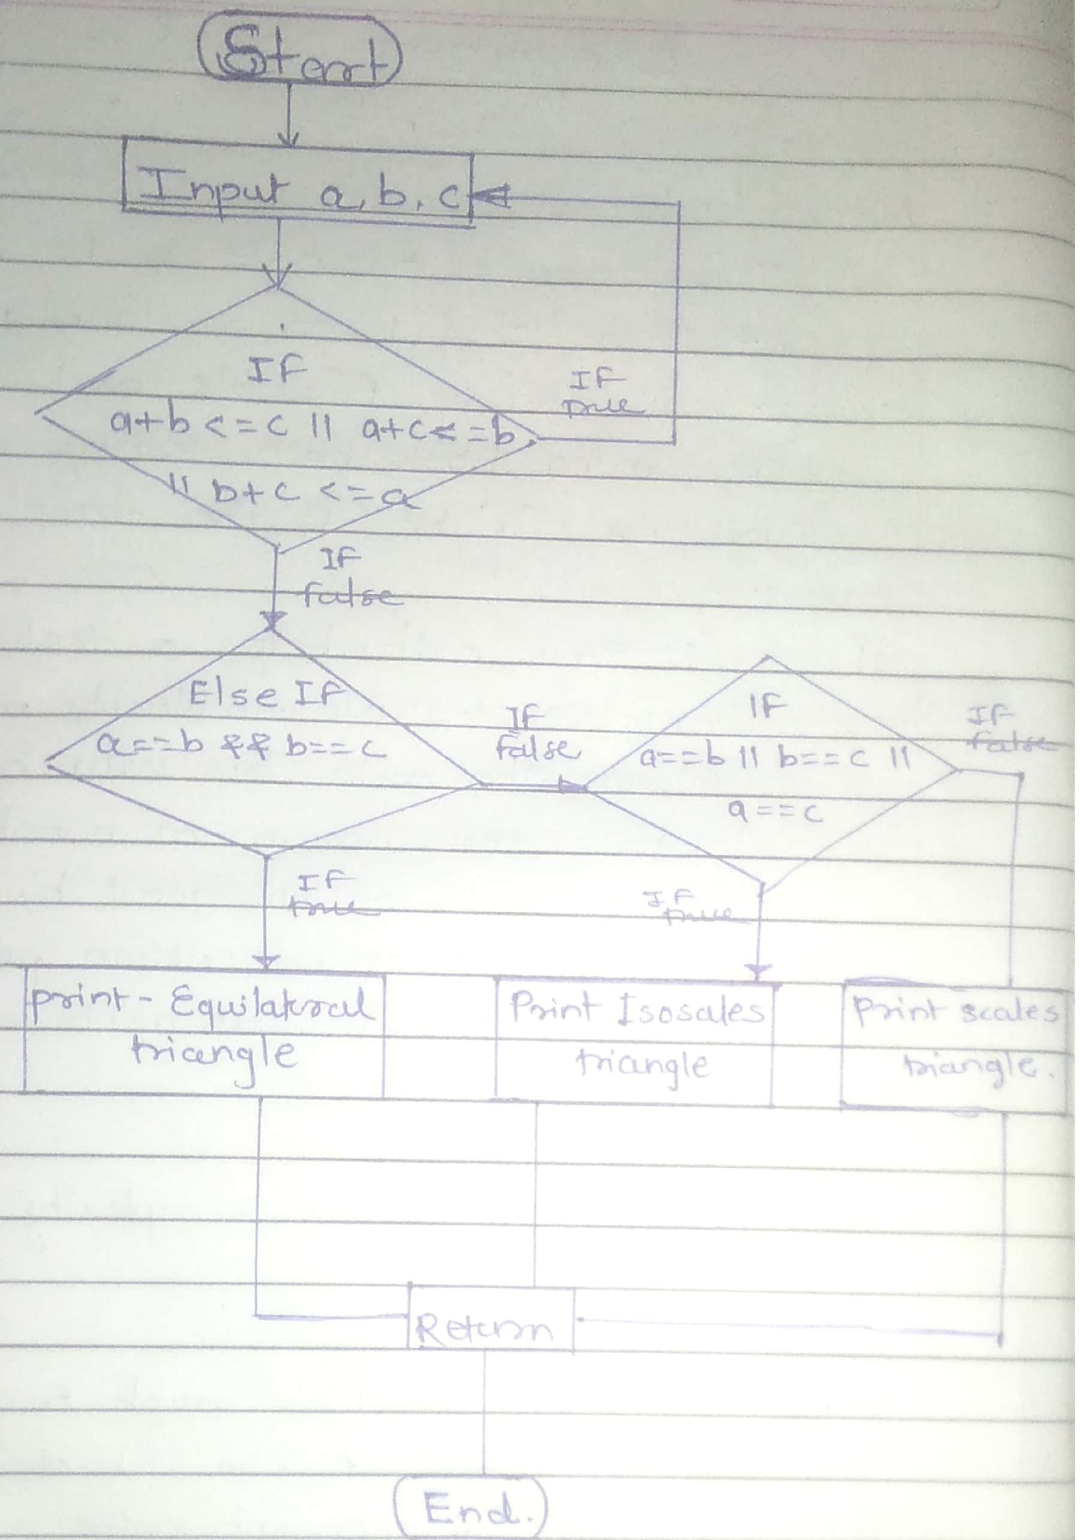 Start
Input a, b, c
If
a+b <= c || a+c <= b
|| b+c <= a
If
true
If
false
Else If
a==b && b==c
If
false
IF
a==b || b==c ||
a==c
If
false
If
true
If
true
print - Equilateral
triangle
Print Isosales
triangle
Print scales
triangle.
Return
End.